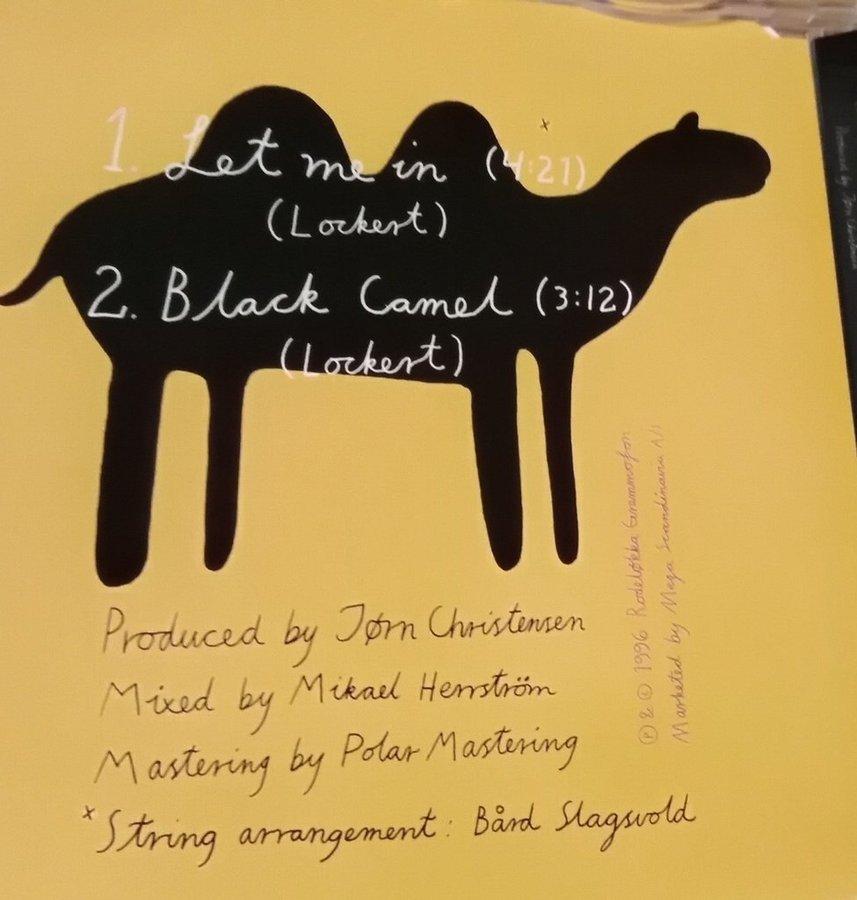 1. Let me in (4:21) x
(Lockert)
2. Black Camel (3:12)
(Lockert)
Produced by Jørn Christensen
Mixed by Mikael Herrström
Mastering by Polar Mastering
x String arrangement: Bård Slagsvold
Ⓟ & © 1996 Rodeløkka Grammofon
Marketed by Mega Scandinavia A/S